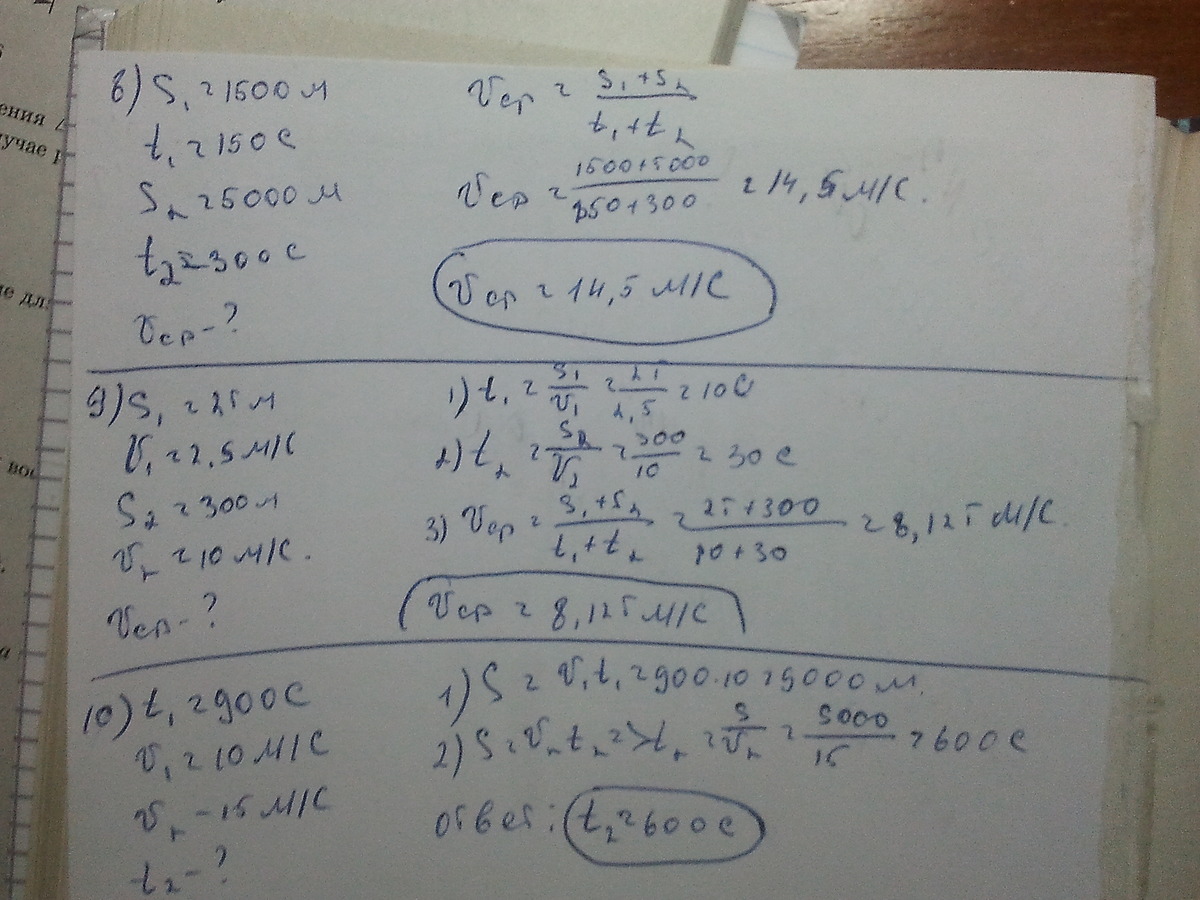 ения
лучае р
ие дл
вос
8) S₁ = 1500 м
t₁ = 150 с
S₂ = 5000 м
t₂ = 300 с
Vср - ?
Vср = (S₁ + S₂) / (t₁ + t₂)
Vср = (1500+5000) / (150+300) = 14,5 м/с.
Vср = 14,5 м/с
9) S₁ = 25 м
V₁ = 2,5 м/с
S₂ = 300 м
V₂ = 10 м/с.
Vср - ?
1) t₁ = S₁ / V₁ = 25 / 2,5 = 10 с
2) t₂ = S₂ / V₂ = 300 / 10 = 30 с
3) Vср = (S₁ + S₂) / (t₁ + t₂) = (25+300) / (10+30) = 8,125 м/с.
Vср = 8,125 м/с
10) t₁ = 900 с
V₁ = 10 м/с
V₂ - 15 м/с
t₂ - ?
1) S = V₁t₁ = 900·10 = 9000 м.
2) S = V₂t₂ => t₂ = S / V₂ = 9000 / 15 = 600 с
ответ: t₂ = 600 с